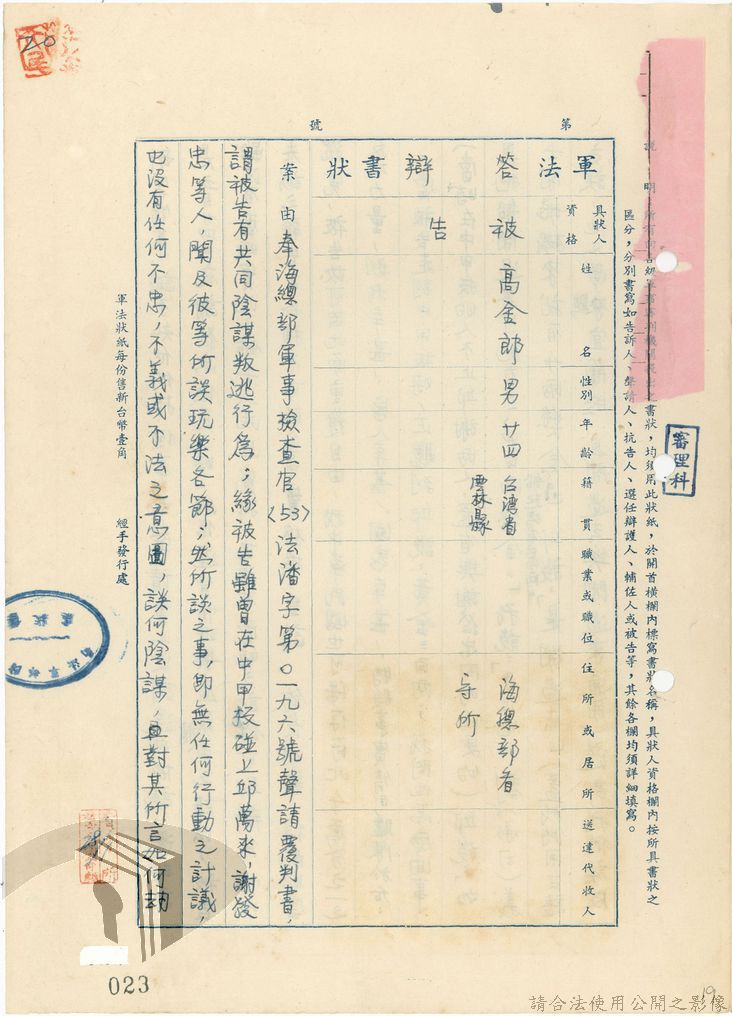 20
第
號
說明：所有
書狀，均須用此狀紙，於開首橫欄內標寫書狀名稱，具狀人資格欄內按所具書狀之
區分，分別書寫如告訴人、聲請人、抗告人、選任辯護人、輔佐人或被告等，其餘各欄均須詳細填寫。
審理科
軍法
答辯書狀
具狀人
資格
姓名
性別
年齡
籍貫
職業或職位
住所或居所
送達代收人
被告
高金郎
男
廿四
台灣省
雲林縣
海總部看
守所
案由
奉海總部軍事檢查官〈53〉法潘字第〇一九六號聲請覆判書，
謂被告有共同陰謀叛逃行為；緣被告雖曾在中甲板碰上邱萬來，謝發
忠等人，聞及彼等所談玩樂各節；然所談之事，即無任何行動之計議，
也沒有任何不忠，不義或不法之意圖，談何陰謀，且對其所言如何劫
軍法狀紙每份售新台幣壹角
經手發行處
023
19
請合法使用公開之影像